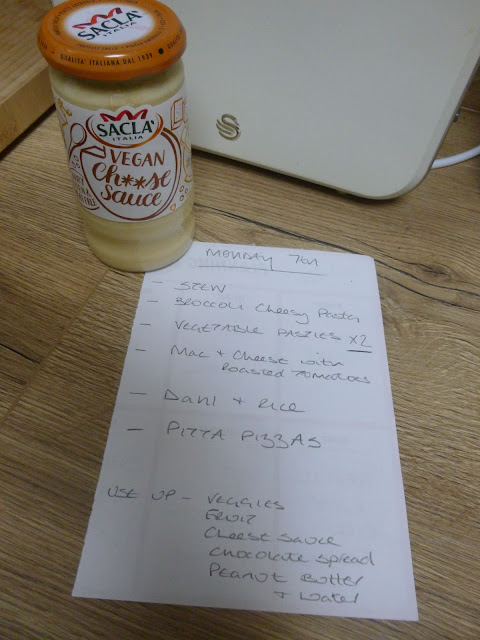 SACLÀ
ITALIA
VITALITA' ITALIANA DAL 1939
SACLA'
ITALIA
VEGAN
Ch**se
Sauce
MONDAY 7th
- STEW
- BROCCOLI Cheesy Pasta
- VEGETABLE PASTIES X2
- Mac + Cheese with
Roasted Tomatoes
- Dahl + Rice
- PITTA PIZZAS
USE UP - VEGGIES
FRUIT
Cheese Sauce
Chocolate Spread
Peanut Butter
+ Water